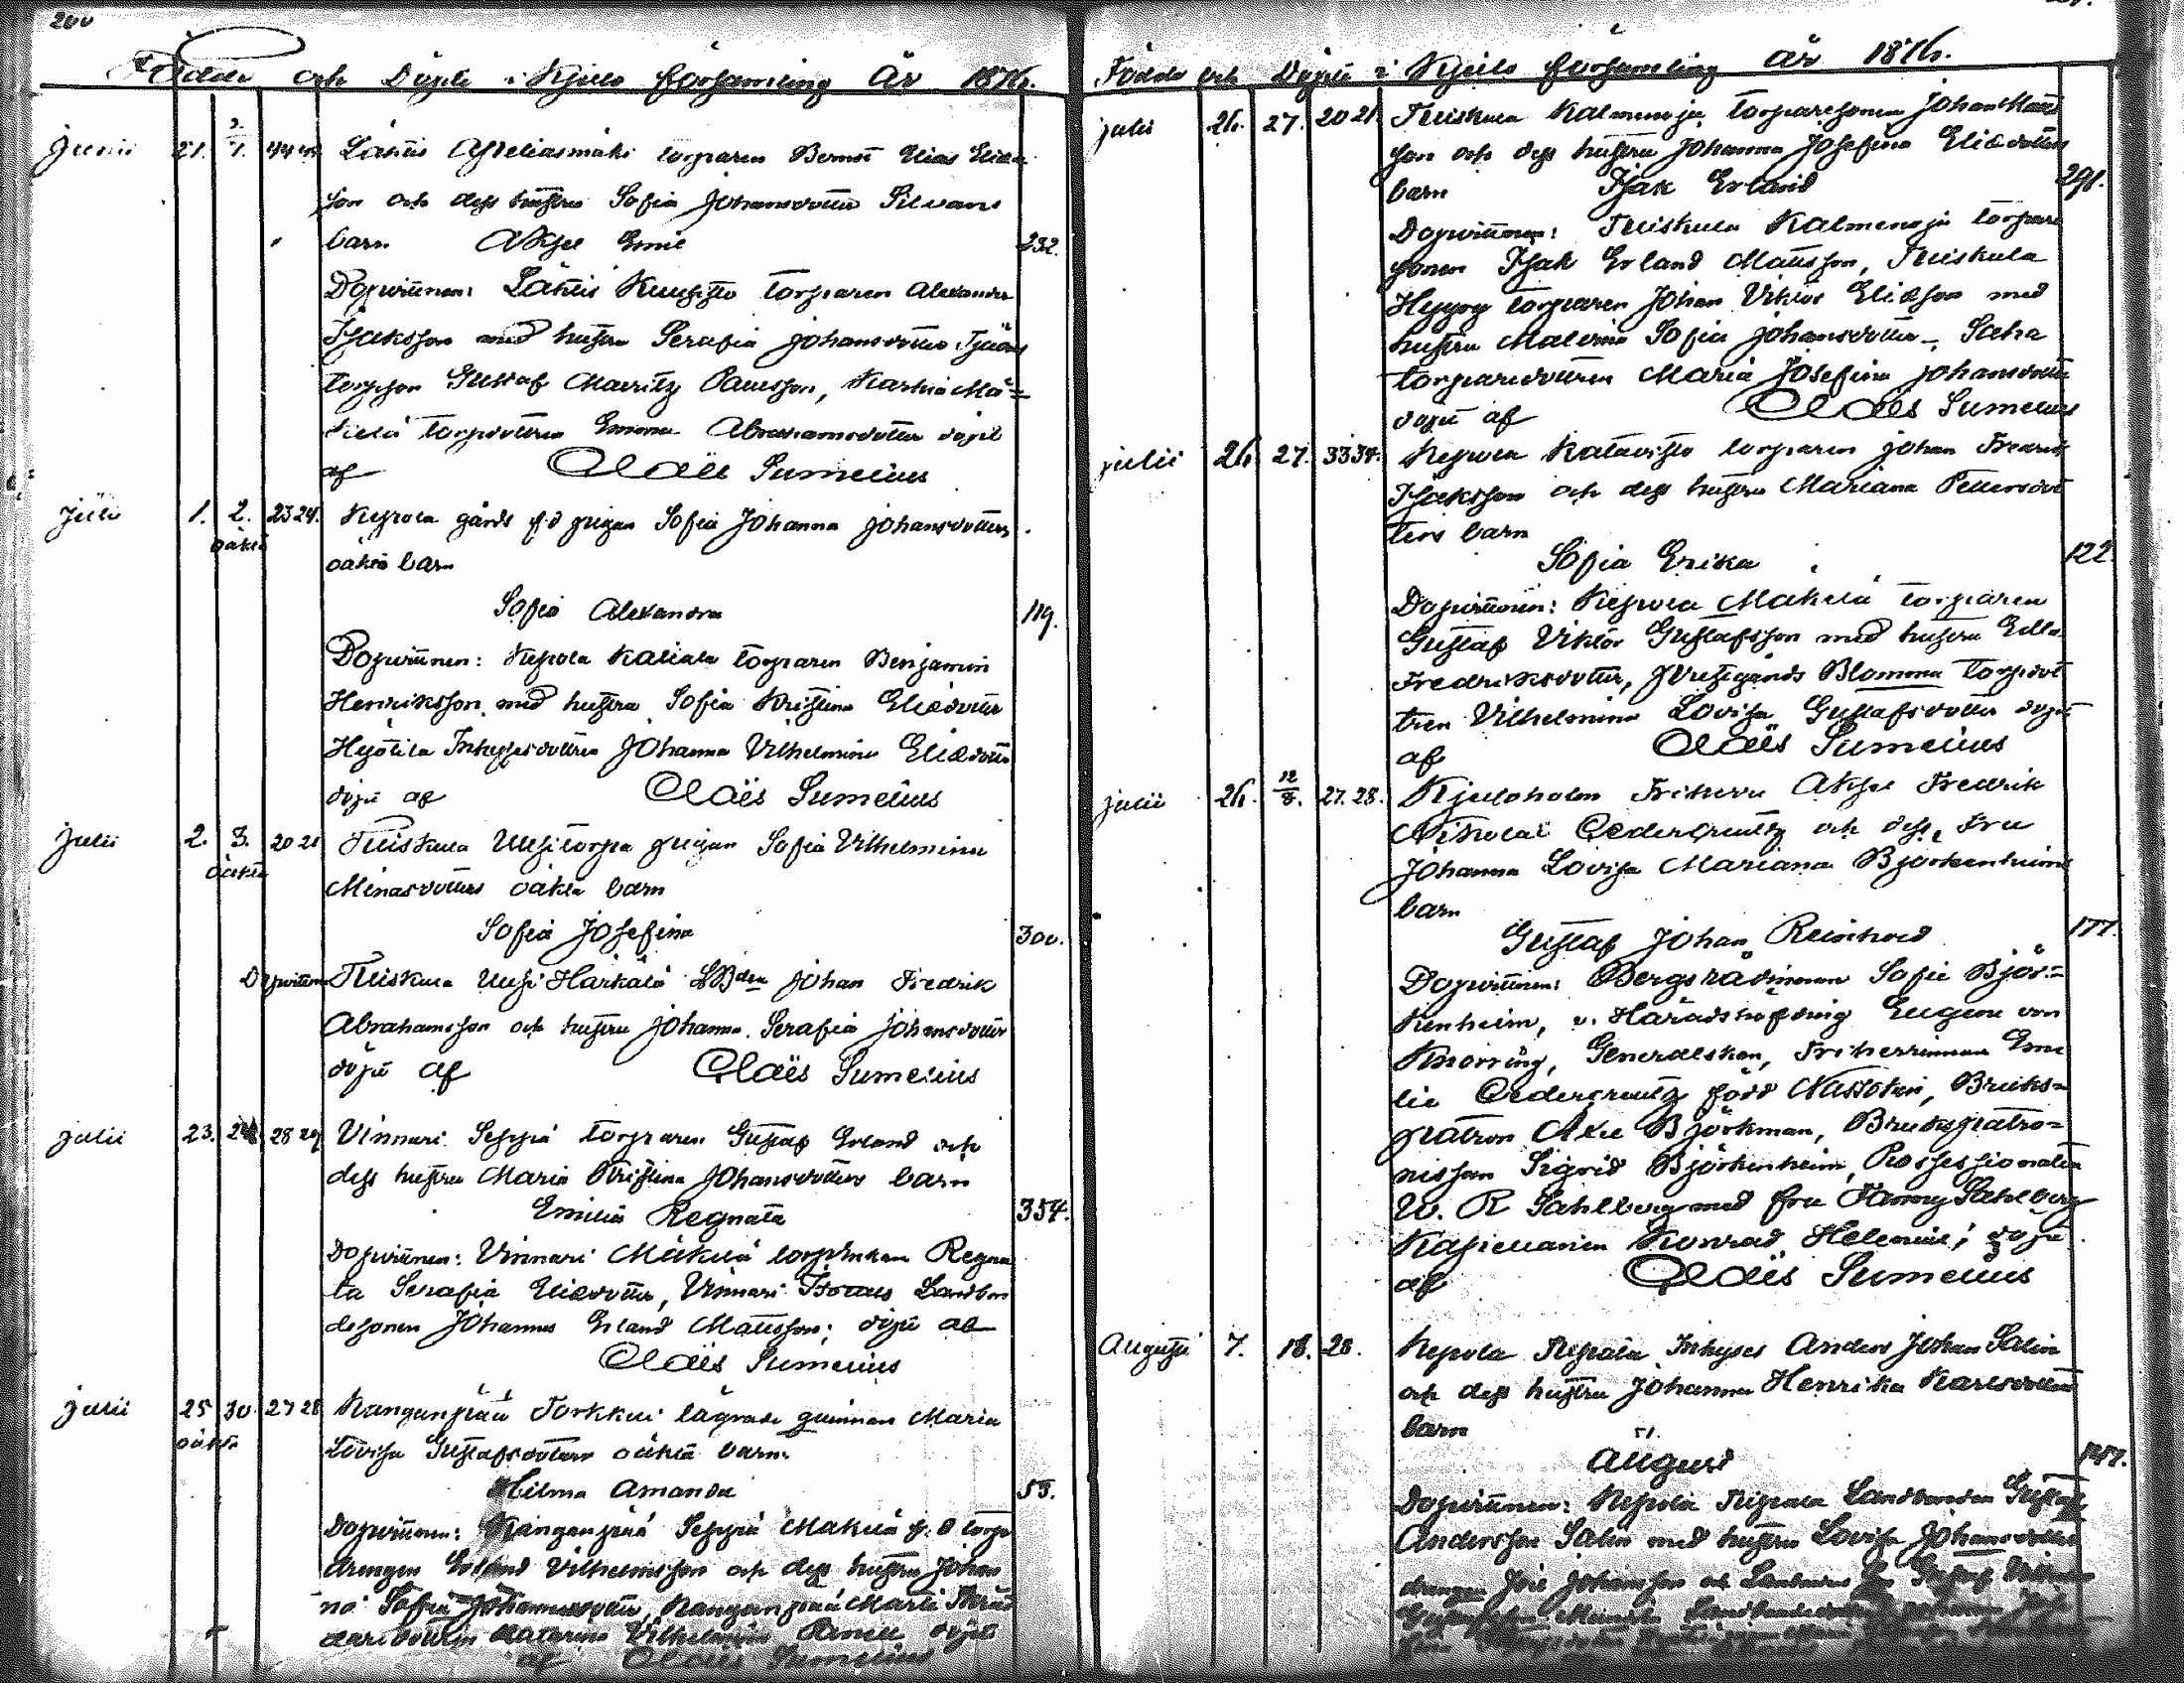 200
Födde och Döpte i Kjulo församling År 1876.
Junii 21. 2/7. 44 45 Lähtis Ylieliasmäki torparen Bernt Elias Elias
son och dess hustru Sofia Johansdotter Silvans
barn Aksel Emil 232.
Dopvittnen: Lähtis Kuusisto torparen Alexander
Isaksson med hustru Serafia Johansdotter
torpson Gustaf Mauritz Paulsson, Karhia Mä=
kelä torpdottren Emma Abrahamsdotter döpt
af Claës Sumelius
Julii 1. 2. 23 24. Kepola gårds f.d pigan Sofia Johanna Johansdotters
oäkta
oäkta barn
Sofia Alexandra 119.
Dopvittnen: Kepola Kaliala torparen Benjamin
Henriksson med hustru Sofia Kristina Eliedotter
Hyötilä Inhysesdottren Johanna Vilhelmina Eliedotter
döpt af Claës Sumelius
Julii 2. 3. 20 21 Tuiskula Uusitorpa pigan Sofia Vilhelmina
oäkta
Minasdotters oäkta barn
Sofia Josefina 300.
Dopvittnen Tuiskula Uusi Härkälä LBden Johan Fredrik
Abrahamsson och hustru Johanna Serafia Johansdotter
döpt af Claës Sumelius
Julii 23. 24 28 29 Vinnari Seppä torparen Gustaf Erland och
dess hustru Maria Kristina Johansdotters barn
Emilia Regnata 354.
Dopvittnen: Vinnari Mäkilä torpenkan Regna
ta Serafia Eliedotter, Vinnari Isotalo Landbon
desonen Johannes Erland Mattsson; döpt af
Claës Sumelius
Julii 25 30. 27 28 Kanganpää Torkkui lägrade qvinnan Maria
oäkta
Lovisa Gustafsdotters oäkta barn.
Hilma Amanda 53.
Dopvittnen: Kanganpää Seppä Mäkilä f.d torp
drengen Erland Vilhelmsson och dess hustru Johan
na Sofia Johannesdotter, Kanganpää Martti Skräd
daredottren Katarina Vilhelmina döpt
af Claës Sumelius
Födde och Döpte i Kjulo församling År 1876.
julii 26. 27. 20 21. Tuiskula Kalmenoja torparesonen Johan Matts
son och dess hustru Johanna Josefina Eliedotters
barn Isak Erland 298.
Dopvittnen: Tuiskula Kalmenoja torpare
sonen Isak Erland Mattsson, Tuiskula
torparen Johan Viktor Eliesson med
hustru Malvina Sofia Johansdotter, Saha
torparedottren Maria Josefina Johansdotter
döpt af Claës Sumelius
julii 26 27. 33 34. Kepola Katavisto torparen Johan Fredrik
Isaksson och dess hustru Mariana Pettersdot
ters barn
Sofia Erika 122
Dopvittnen: Kepola Mäkilä torparen
Gustaf Viktor Gustafsson med hustru Edla
Fredriksdotter, Blomma torpdot
tren Vilhelmina Lovisa Gustafsdotter döpt
af Claës Sumelius
julii 26. 12/8. 27. 28. Kjuloholm Friherre Aksel Fredrik
Nikolai Cedercreutz och dess Fru
Johanna Lovisa Mariana Björkenheims
barn
Gustaf Johan Reinhold 177.
Dopvittnen: Bergsrådinnan Sofie Björ=
kenheim, v. Häradshöfding Eugene von
Knorring, Generalskan, Friherrinnan Eme
lie Cedercreutz född Nassokin, Bruks=
patron Åke Björkman, Brukspatro=
nissan Sigrid Björkenheim, Possessionaten
W. R Sahlberg med fru Fanny Sahlberg
Kapellanen Konrad Helenius; döpt
af Claës Sumelius
Augusti 7. 18. 28. Kepola Inhyses Anders Johan Salin
och dess hustru Johanna Henrika Karlsdotters
barn
August 147.
Dopvittnen: Kepola Landbonden Gustaf
Andersson Salin med hustru Lovisa Johansdotter
drengen Joel Johansson